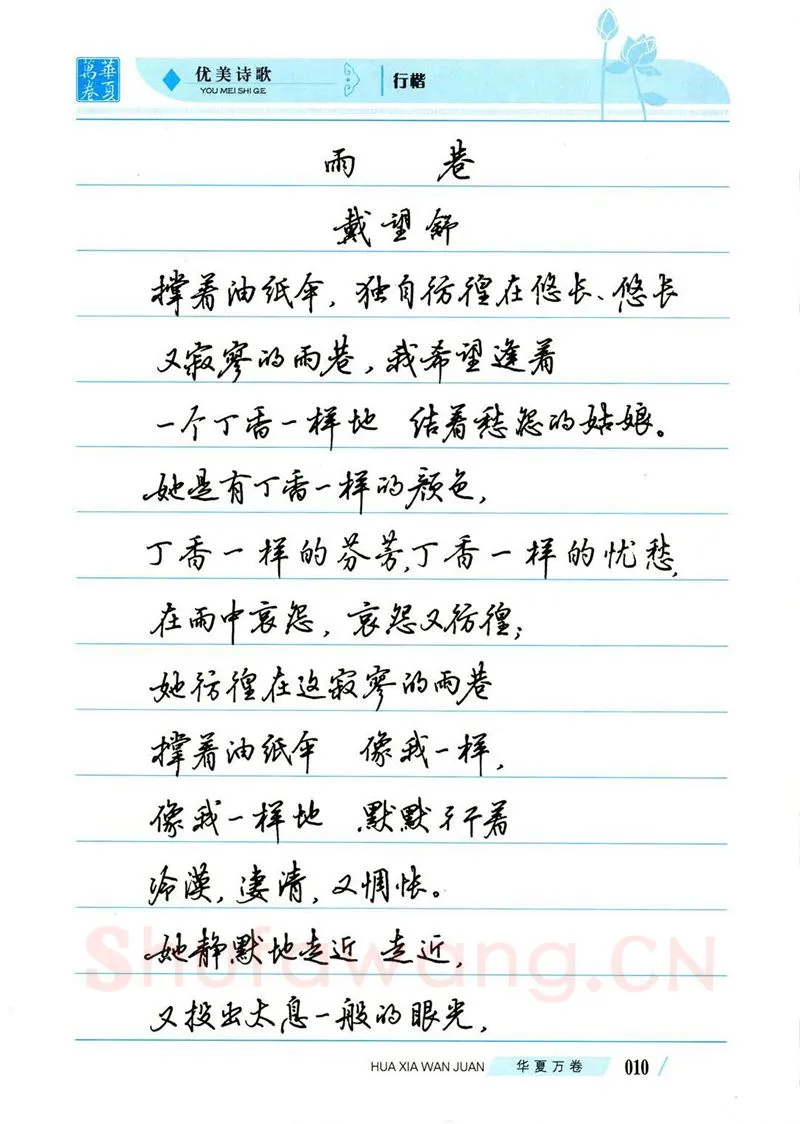 華夏萬卷
优美诗歌
YOU MEI SHI GE
行楷
雨 巷
戴望舒
撑着油纸伞，独自彷徨在悠长、悠长
又寂寥的雨巷，我希望逢着
一个丁香一样地 结着愁怨的姑娘。
她是有丁香一样的颜色，
丁香一样的芬芳，丁香一样的忧愁，
在雨中哀怨，哀怨又彷徨；
她彷徨在这寂寥的雨巷
撑着油纸伞 像我一样，
像我一样地 默默彳亍着
冷漠，凄清，又惆怅。
她静默地走近 走近，
又投出太息一般的眼光，
Shufawang.CN
HUA XIA WAN JUAN
华夏万卷
010